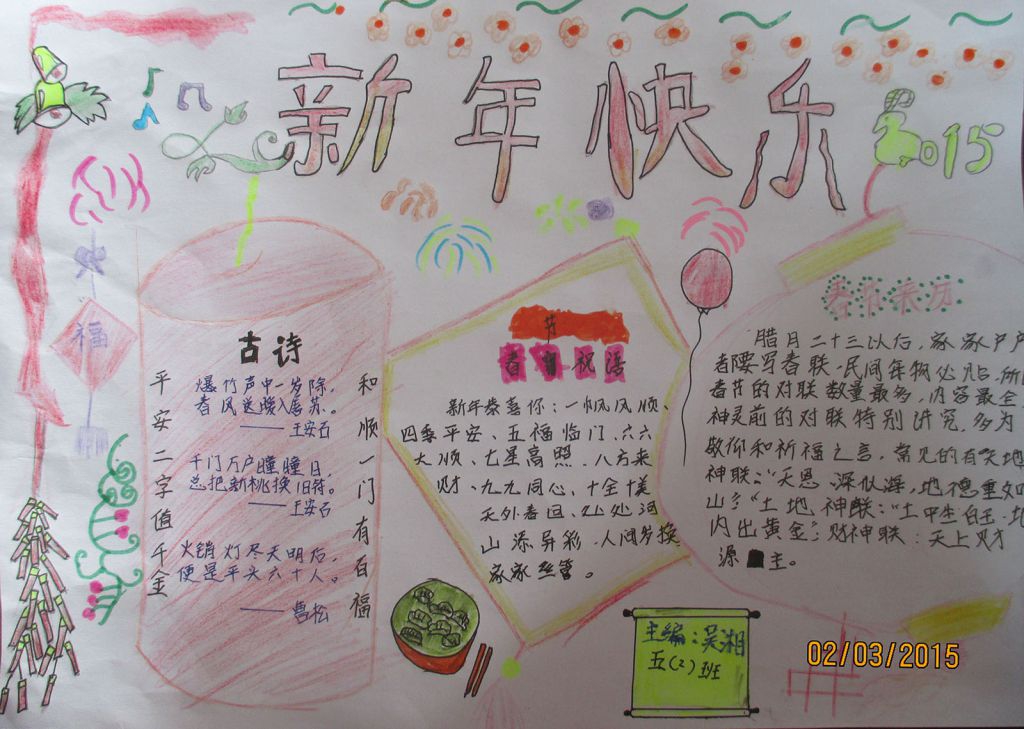 新年快乐
2015
福
古诗
平安二字值千金
爆竹声中一岁除,
春风送暖入屠苏。
——王安石
千门万户曈曈日,
总把新桃换旧符。
——王安石
火销灯尽天明后,
便是平头六十人。
——曹松
和顺一门有百福
春节祝语
新年恭喜你:一帆风顺、
四季平安、五福临门、六六
大顺、七星高照、八方来
财、九九同心、十全十美
天外春回、处处河
山添异彩,人间岁换
家家丝管。
春节来历
腊月二十三以后,家家户户
都要写春联,民间年物必
春节的对联数量最多,内容最全
神灵前的对联特别讲究,多为
敬仰和祈福之言。常见的有天地
神联:“天恩深似海,地德重如
山”;“土地神联:“土中生白玉,地
内出黄金”;财神联:天上财
源主。
主编:吴湘
五(2)班
02/03/2015